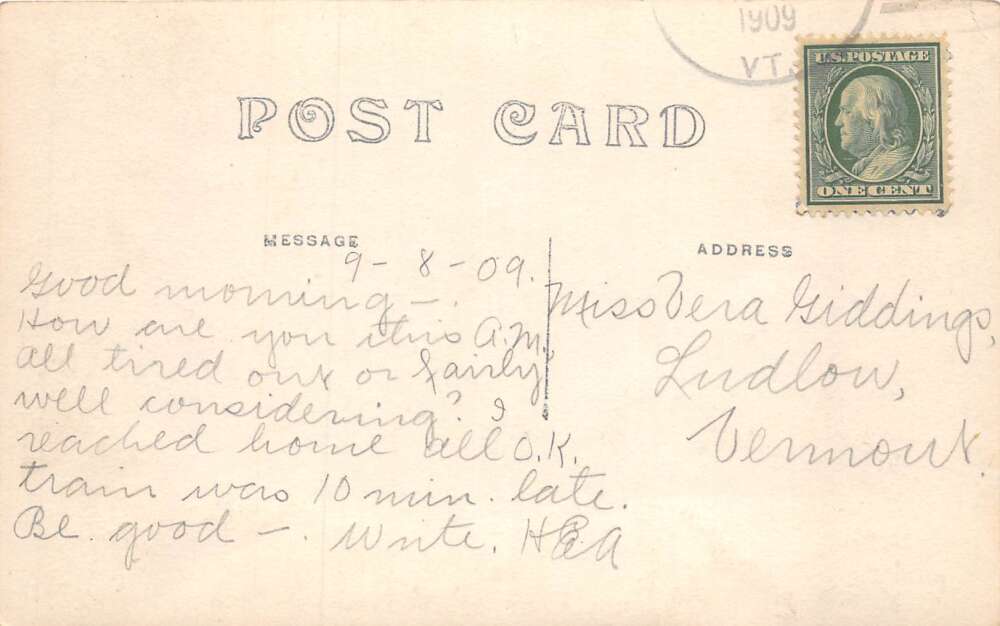 1909
VT.
U.S. POSTAGE
ONE CENT
POST CARD
MESSAGE
9-8-09.
Good morning —.
How are you this A.M.
all tired out or fairly
well considering? I
reached home all O.K.
train was 10 min. late.
Be good —. Write. HEA
ADDRESS
Miss Vera Giddings,
Ludlow,
Vermont.